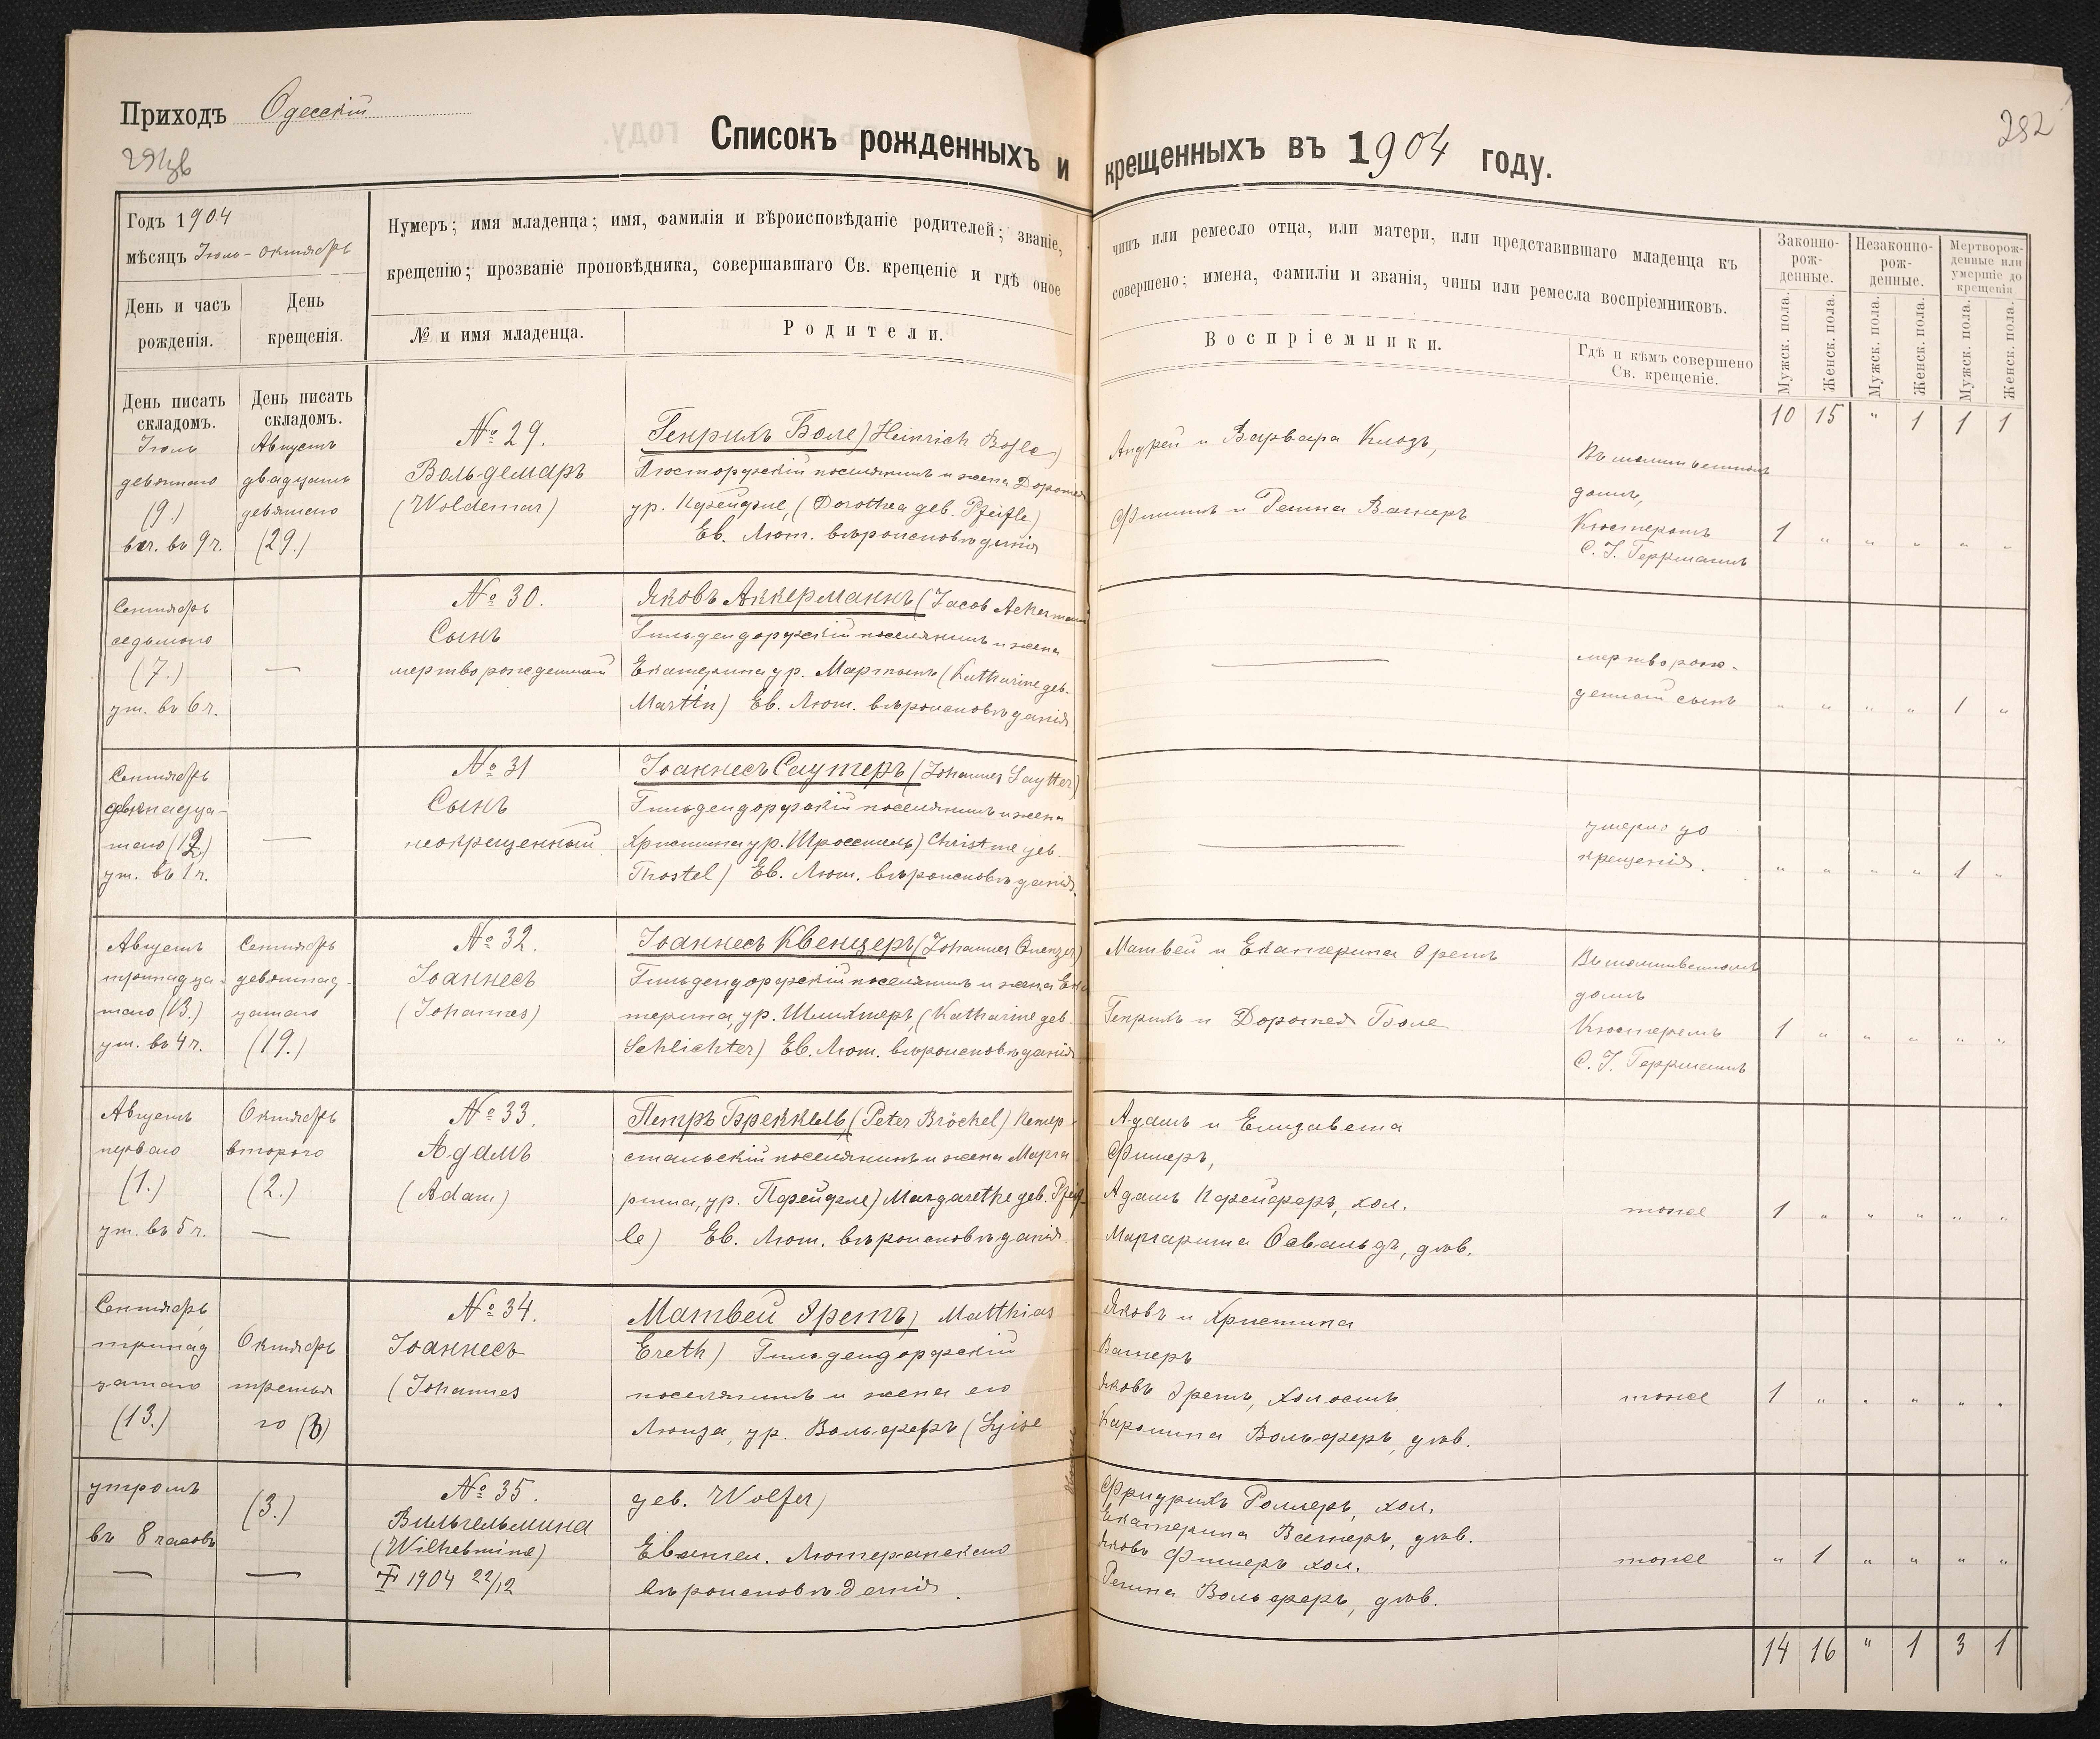 Приходъ Одесскій
Списокъ рожденныхъ и крещенныхъ въ 1904 году.
292
Годъ 1904
мѣсяцъ Іюль - октябрь
День и часъ рожденія.
День крещенія.
Нумеръ; имя младенца; имя, фамилія и вѣроисповѣданіе родителей; званіе, чинъ или ремесло отца, или матери, или представившаго младенца къ
крещенію; прозваніе проповѣдника, совершавшаго Св. крещеніе и гдѣ оное совершено; имена, фамиліи и званія, чины или ремесла воспріемниковъ.
№ и имя младенца.
Родители.
Воспріемники.
Гдѣ и кѣмъ совершено Св. крещеніе.
Законно-рож-денные.
Незаконно-рож-денные.
Мертворож-денные или умершіе до крещенія
Мужск. пола.
Женск. пола.
Мужск. пола.
Женск. пола.
Мужск. пола.
Женск. пола.
День писать складомъ.
День писать складомъ.
10 15 " 1 1 1
Іюль
девятаго
(9.)
веч. въ 9 ч.
Августъ
двадцать
девятаго
(29.)
№ 29.
Вольдемаръ
(Woldemar)
Генрихъ Боле) Heinrich Bohle)
Люстдорфскій поселянинъ и жена Доротея
ур. Пфейфле, (Dorothea геб. Pfeifle)
Ев. Лют. вѣроисповѣданія
Андрей и Варвара Клодъ,
Филиппъ и Регина Вагнеръ
Въ молитвенномъ
домѣ,
Кюстеромъ
С. І. Геррманнъ
1 " " " " "
Сентябрь
седьмого
(7.)
ут. въ 6 ч.
—
№ 30.
Сынъ
мертворожденный
Яковъ Аккерманнъ (Jacob Ackermann
Гильдендорфскій поселянинъ и жена
Екатерина ур. Мартынъ (Katharine геб.
Martin) Ев. Лют. вѣроисповѣданія
—
мертворож-
денный сынъ
" " " " 1 "
Сентябрь
двѣнадца-
таго (12.)
ут. въ 1 ч.
—
№ 31
Сынъ
неокрещенный
Іоаннесъ Саутеръ (Johannes Sautter)
Гильдендорфскій поселянинъ и жена
Христина ур. Тростель) Christine геб.
Throstel) Ев. Лют. вѣроисповѣданія.
—
умеръ до
крещенія.
" " " " 1 "
Августъ
тринадца-
таго (13.)
ут. въ 4 ч.
Сентябрь
девятнад-
цатаго
(19.)
№ 32.
Іоаннесъ
(Johannes)
Іоаннесъ Квенцеръ (Johannes Quenzer)
Гильдендорфскій поселянинъ и жена Ека
терина, ур. Шлихтеръ, (Katharine геб.
Schlichter) Ев. Лют. вѣроисповѣданія
Матвей и Екатерина Эретъ
Генрихъ и Доротея Боле
Въ молитвенномъ
домѣ
Кюстеромъ
С. І. Геррманнъ
1 " " " " "
Августъ
перваго
(1.)
ут. въ 5 ч.
Октябрь
второго
(2.)
—
№ 33.
Адамъ
(Adam)
Петръ Бреккель (Peter Bröckel) Петер-
стальскій поселянинъ и жена Марга
рита, ур. Пфейфле) Margarethe геб. Pfeif-
le) Ев. Лют. вѣроисповѣданія.
Адамъ и Елизавета
Фишеръ,
Адамъ Пфейферъ, хол.
Маргарита Освальдъ, дѣв.
тоже
1 " " " " "
Сентябрь
тринад
цатаго
(13.)
Октябрь
третья
го (3)
№ 34.
Іоаннесъ
(Johannes
Матвей Эретъ) Matthias
Ereth) Гильдендорфскій
поселянинъ и жена его
Люиза, ур. Вольферъ (Luise
Яковъ и Христина
Вагнеръ
Яковъ Эретъ, холостъ
Каролина Вольферъ, дѣв.
тоже
1 " " " " "
утромъ
въ 8 часовъ
—
(3.)
—
№ 35.
Вильгельмина
(Wilhelmine)
† 1904 22/12
геб. Wolfer)
Евангел. Лютеранскаго
вѣроисповѣданія.
Фридрихъ Роллеръ, хол.
Екатерина Вагнеръ, дѣв.
Яковъ Фишеръ хол.
Регина Вольферъ, дѣв.
тоже
" 1 " " " "
14 16 " 1 3 1